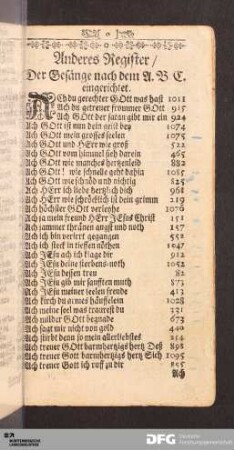 Anderes Register /
Der Gesänge nach dem A. B C.
eingerichtet.
ACh du gerechter GOtt was hast 1011
Ach du getreuer frommer GOtt 915
Ach GOtt der satan gibt mir ein 924
Ach GOtt ist nun dein geist bey 1074
Ach GOtt mein grosses seelen 1075
Ach GOtt und HErr wie groß 522
Ach GOtt vom himmel sieh darein 465
Ach GOtt wie manches hertzenleid 882
Ach GOtt! wie schnelle geht dahin 1085
Ach GOtt wie schnöd und nichtig 825
Ach HErr ich liebe hertzlich dich 968
Ach HErr wie schröcklich ist dein grimm 210
Ach höchster GOtt verleyhe 1076
Ach ja mein freund HErr JEsus Christ 151
Ach jammer thränen angst und noth 157
Ach ich bin verirrt gegangen 552
Ach ich steck in tieffen nöthen
Ach JEsu ach ich klage dir 912
Ach JEsu deine sterbens-noth 1052
Ach JEsu dessen treu 82
Ach JEsu gib mir sanfften muth 873
Ach JEsu meiner seelen freude 413
Ach kirch du armes häuffelein 1028
Ach meine seel was traurest du 331
Ach milder GOtt begnade 673
Ach sagt mir nicht von gold 440
Ach stirbt denn so mein allerliebstes 214
Ach treuer GOtt barmhertzigs hertz Deß 898
Ach treuer Gott barmhertzigs hertz Sich 1095
Ach treuer Gott ich ruff zu dir 855
Ach
DFG